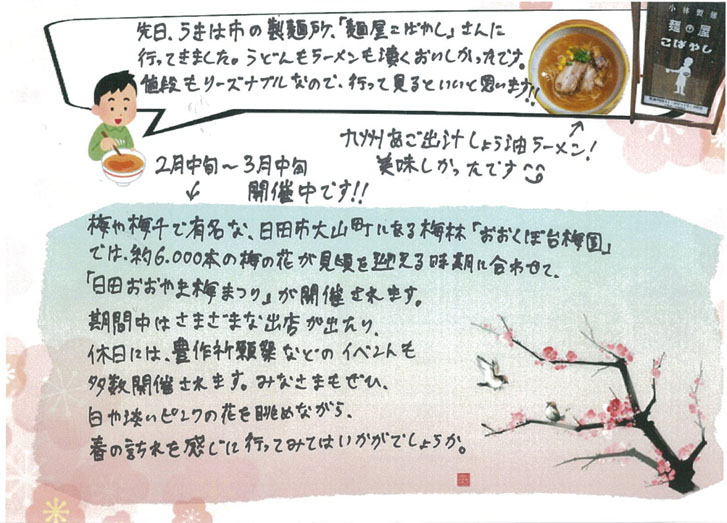 先日、うきは市の製麺所、「麺屋こばやし」さんに
行ってきました。うどんもラーメンも凄くおいしかったです。
値段もリーズナブルなので、行って見るといいと思います!!
小林製麺
麺屋
こばやし
九州あご出汁しょう油ラーメン!
美味しかったです
2月中旬~3月中旬
開催中です!!
梅や梅干で有名な、日田市大山町にある梅林「おおくぼ台梅園」
では、約6.000本の梅の花が見頃を迎える時期に合わせて、
「日田おおやま梅まつり」が開催されます。
期間中はさまざまな出店が出たり、
休日には、豊作祈願祭などのイベントも
多数開催されます。みなさまもぜひ、
白や淡いピンクの花を眺めながら、
春の訪れを感じに行ってみてはいかがでしょうか。